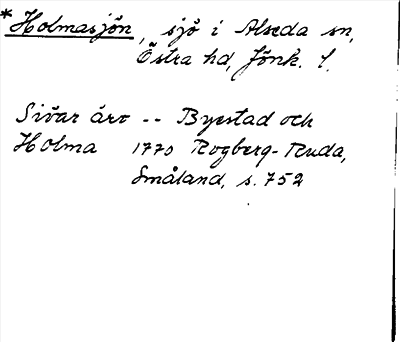 *Holmasjön, sjö i Alseda sn,
Östra hd, Jönk. l.
Sivar äro -- Byestad och
Holma 1770 Rogberg-Ruda,
Småland, s. 752